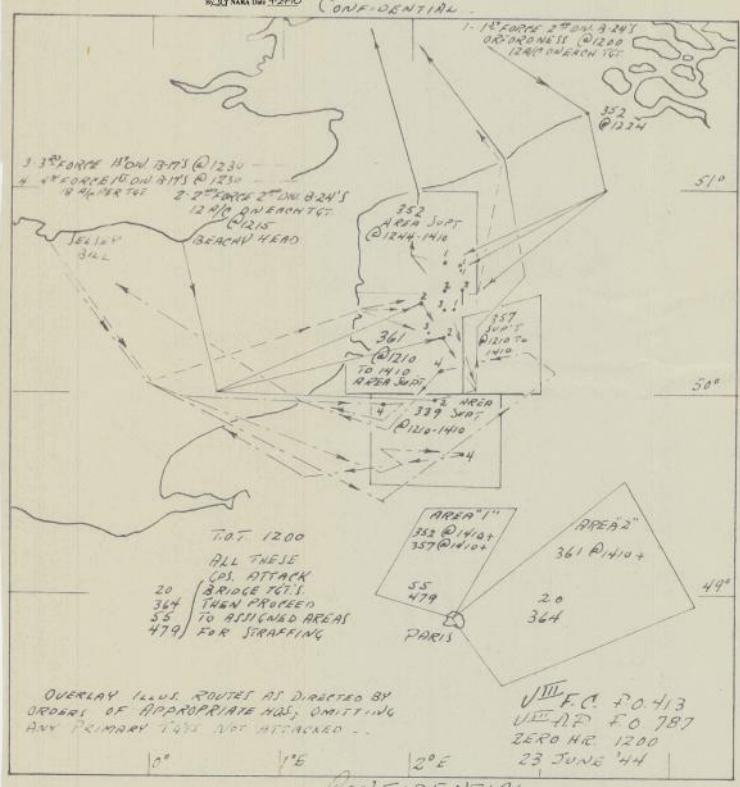 CONFIDENTIAL
1 - 1ST FORCE 2ND DIV. B-24'S
ORFORDNESS @ 1200
12 A/C ON EACH TGT.
352
@ 1224
3 3RD FORCE 1ST DIV. B-17'S @ 1230
4 4TH FORCE 1ST DIV B-17'S @ 1230
18 A/C PER TGT
2 - 2ND FORCE 2ND DIV. B-24'S
12 A/C ON EACH TGT.
@ 1215
BEACHY HEAD
SELSEY
BILL
51°
352
AREA SUPT
@ 1244-1410
1
1
4
2
3
3
1
2
3
2
4
361
@ 1210
TO 1410
AREA SUPT
357
SUPT
@ 1210 TO
1410
50°
4
2 AREA
339 SUPT
@ 1210-1410
4
T.O.T. 1200
ALL THESE
GPS. ATTACK
20 BRIDGE TGT.S
364 THEN PROCEED
55 TO ASSIGNED AREAS
479 FOR STRAFFING
AREA "1"
352 @ 1410+
357 @ 1410+
55
479
AREA "2"
361 @ 1410+
20
364
49°
PARIS
OVERLAY ILLUS. ROUTES AS DIRECTED BY
ORDERS OF APPROPRIATE HQS; OMITTING
ANY PRIMARY TGTS NOT ATTACKED -
VIII F.C. F.O. 413
VIII A.F. F.O 787
ZERO HR. 1200
23 JUNE '44
0°
1°E
2°E
CONFIDENTIAL